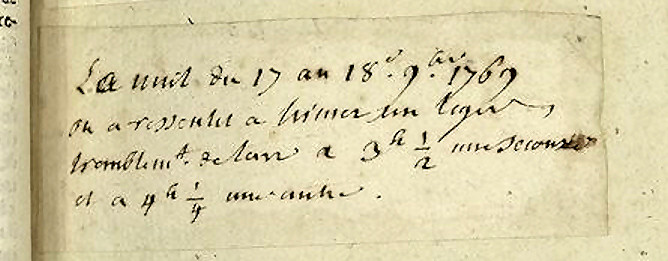 La nuit du 17 au 18e 9bre 1769
on a ressentit a  un leger
tremblemt. de terre a 3h 1/2 une secousse
et a 4h 1/4 une autre.